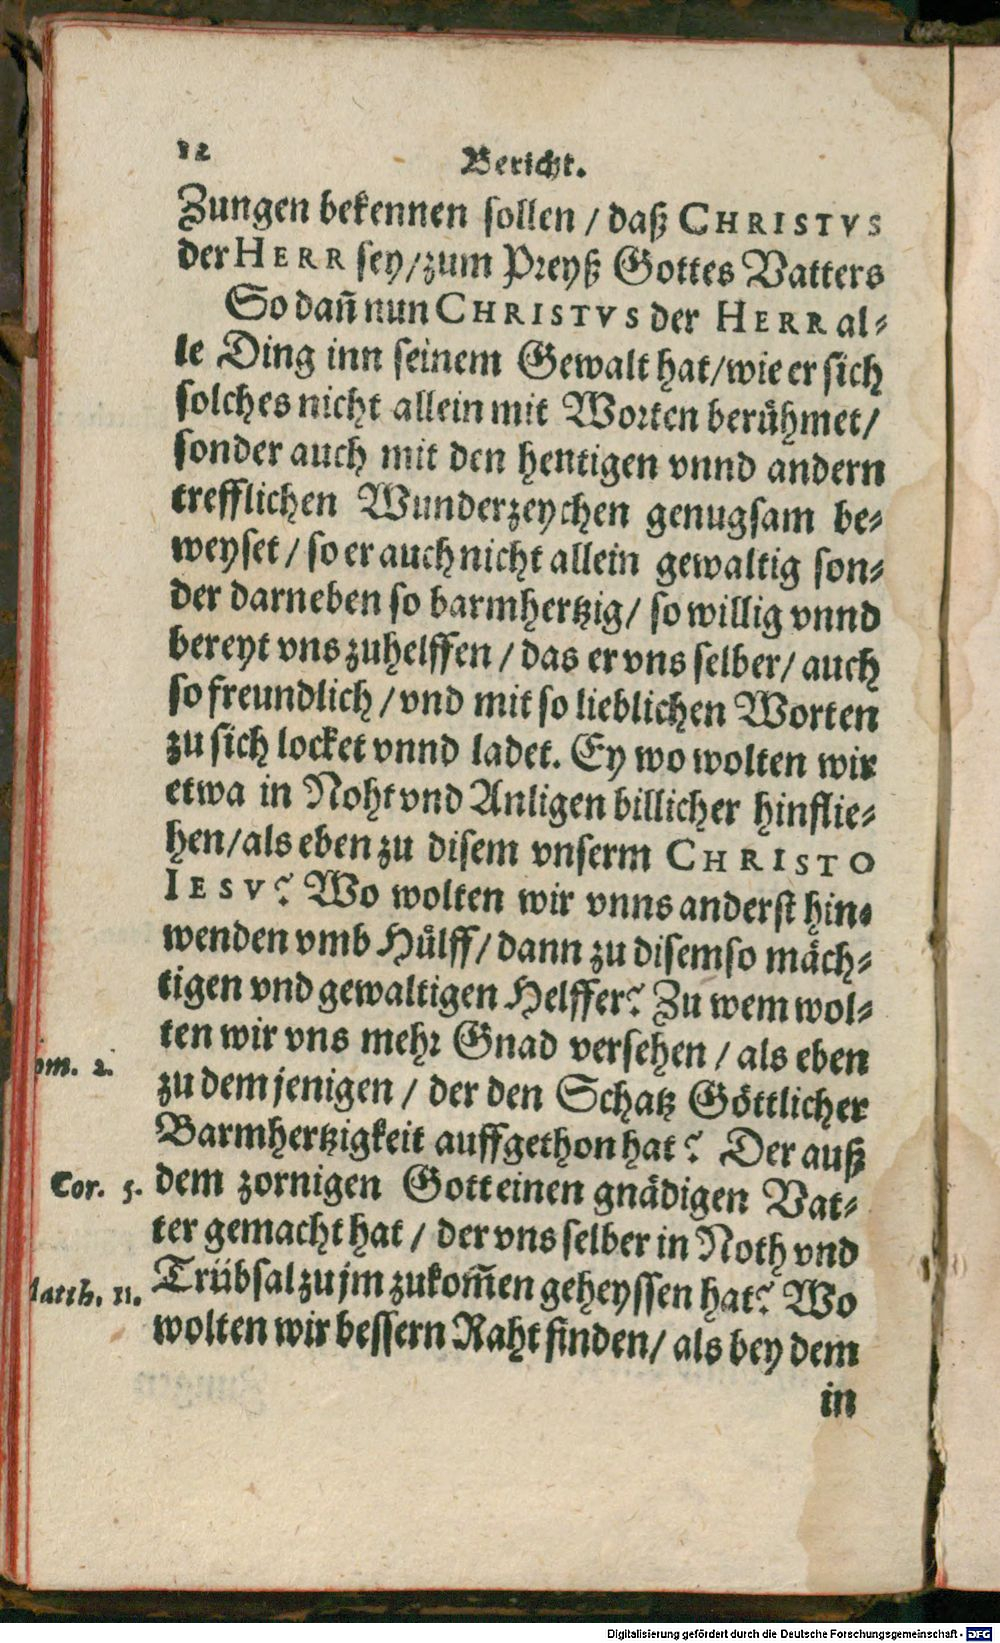 12
Bericht.
Zungen bekennen sollen / daß CHRISTVS
der HERR sey / zum Preyß Gottes Vatters
So dañ nun CHRISTVS der HERR al-
le Ding inn seinem Gewalt hat / wie er sich
solches nicht allein mit Worten berühmet /
sonder auch mit den heutigen vnnd andern
trefflichen Wunderzeychen genugsam be-
weyset / so er auch nicht allein gewaltig son-
der darneben so barmhertzig / so willig vnnd
bereyt vns zuhelffen / das er vns selber / auch
so freundlich / vnd mit so lieblichen Worten
zu sich locket vnnd ladet. Ey wo wolten wir
etwa in Noht vnd Anligen billicher hinflie-
hen / als eben zu disem vnserm CHRISTO
IESV? Wo wolten wir vnns anderst hin-
wenden vmb Hülff / dann zu disem so mäch-
tigen vnd gewaltigen Helffer? Zu wem wol-
ten wir vns mehr Gnad versehen / als eben
om. 2.
zu dem jenigen / der den Schatz Göttlicher
Barmhertzigkeit auffgethon hat? Der auß
Cor. 5.
dem zornigen Gott einen gnädigen Vat-
ter gemacht hat / der vns selber in Noth vnd
Matth. 11.
Trübsal zu jm zukom̃en geheyssen hat? Wo
wolten wir bessern Raht finden / als bey dem
in
Digitalisierung gefördert durch die Deutsche Forschungsgemeinschaft - DFG